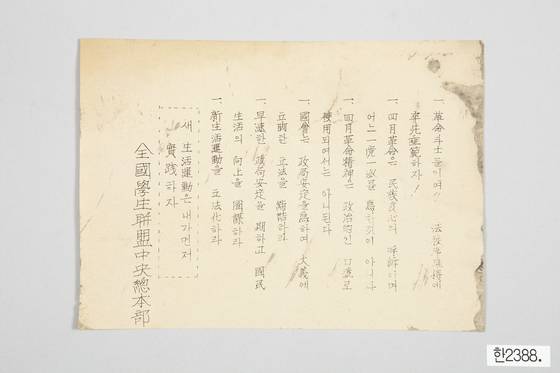 一. 革命斗士들이여!
率先垂範하자!
一. 四月革命은 民族良心의 呼訴이며
어느 一党一派를 爲한것이 아니다
一. 四月革命精神은 政治的인 口號로
使用되여서는 아니된다
一. 國會는 政局安定을 爲하여 大義에
立脚한 立法을
一. 早速한 政局安定을 期하고 國民
生活의 向上을 圖謀하라
一. 新生活運動을 立法化하라
새 生活運動은 내가먼저
實践하자
全國學生聯盟中央總本部
한2388.